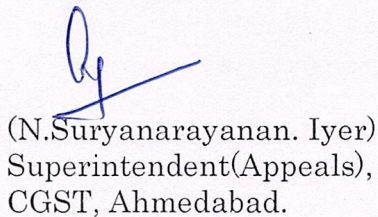 (N.Suryanarayanan. Iyer)
Superintendent(Appeals),
CGST, Ahmedabad.